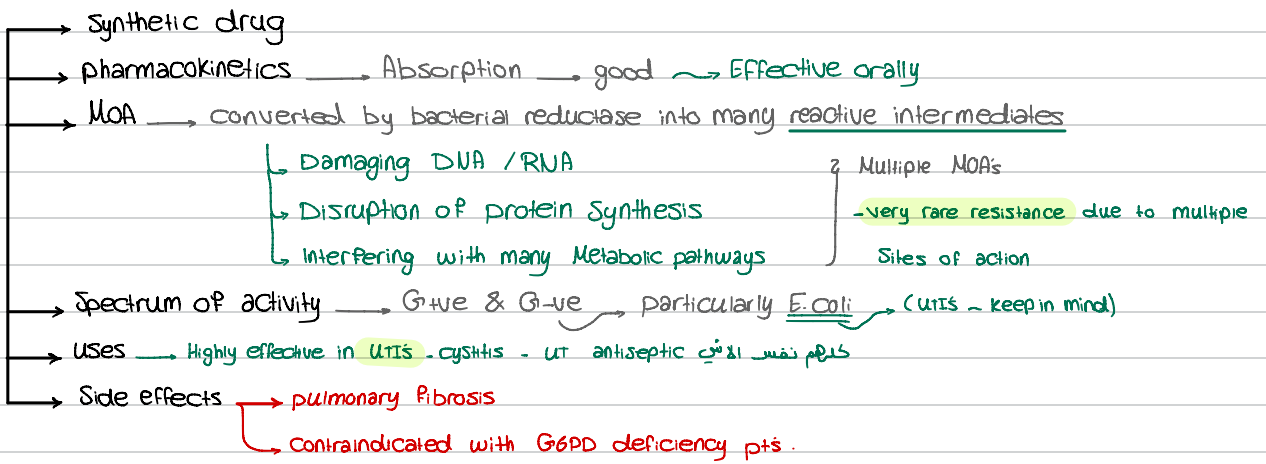 Synthetic drug
pharmacokinetics → Absorption → good → Effective orally
MOA → converted by bacterial reductase into many reactive intermediates
Damaging DNA / RNA
Multiple MOA's
Disruption of protein Synthesis
-very rare resistance due to multiple
Interfering with many Metabolic pathways
Sites of action
Spectrum of activity → G+ve & G-ve → particularly E.coli → (UTI's ~ keep in mind)
uses → Highly effective in UTI's - cystitis - UT antiseptic كلهم نفس الاشي
Side effects → pulmonary fibrosis
Contraindicated with G6PD deficiency pt's.